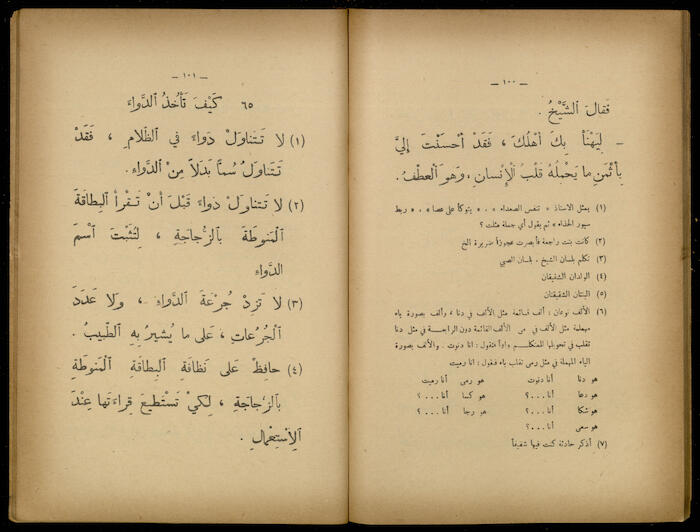 — ١٠٠ —
فَقَالَ ٱلشَّيْخُ .
– لِيَهْنَأْ بِكَ أَهْلُكَ ، فَقَدْ أَحْسَنْتَ إِلَيَّ
بِأَثْمَنِ مَا يَحْمِلُهُ قَلْبُ ٱلْإِنْسَانِ، وَهُوَ ٱلْعَطْفُ.
(١) يمثل الاستاذ « تنفس الصعداء » ، « يتوكأ على عصا » ، « ربط
سيور الحذاء » ثم يقول أي جملة مثلت ؟
(٢) كانت بنت راجعة فأبصرت عجوزاً ضريرة الخ
(٣) تكلم بلسان الشيخ . بلسان الصبي
(٤) الولدان الشفيقان
(٥) البنتان الشفيقتان
(٦) الألف نوعان : ألف قائمة مثل الألف في دنا ، وألف بصورة ياء
مهملة مثل الألف في الألف القائمة دون الراجعة في مثل دنا
تقلب في تحويلها للمتكلم واواً فتقول : انا دنوت . والألف بصورة
الياء المهملة في مثل رمى تقلب ياء فنقول : انا رميت
هو دنا أنا دنوت هو رمى أنا رميت
هو دعا أنا . . . ؟ هو كسا أنا . . . ؟
هو شكا أنا . . . ؟ هو رجا أنا . . . ؟
هو سعى أنا . . . ؟
(٧) أذكر حادثة كنت فيها شفيقاً
— ١٠١ —
٦٥ كَيْفَ تَأْخُذُ ٱلدَّوَاءَ
(١) لَا تَتَنَاوَلْ دَوَاءً فِي ٱلظَّلَامِ ، فَقَدْ
تَتَنَاوَلُ سُمًّا بَدَلًا مِنْ ٱلدَّوَاءِ.
(٢) لَا تَتَنَاوَلْ دَوَاءً قَبْلَ أَنْ تَقْرَأَ ٱلْبِطَاقَةَ
ٱلْمَنُوطَةَ بِٱلزُّجَاجَةِ ، لِتُثْبِتَ ٱسْمَ
ٱلدَّوَاءِ
(٣) لَا تَزِدْ جُرْعَةَ ٱلدَّوَاءِ ، وَلَا عَدَدَ
ٱلْجُرُعَاتِ ، عَلَى مَا يُشِيرُ بِهِ ٱلطَّبِيبُ .
(٤) حَافِظْ عَلَى نَظَافَةِ ٱلْبِطَاقَةِ ٱلْمَنُوطَةِ
بِٱلزُّجَاجَةِ ، لِكَيْ تَسْتَطِيعَ قِرَاءَتَهَا عِنْدَ
ٱلِٱسْتِعْمَالِ .